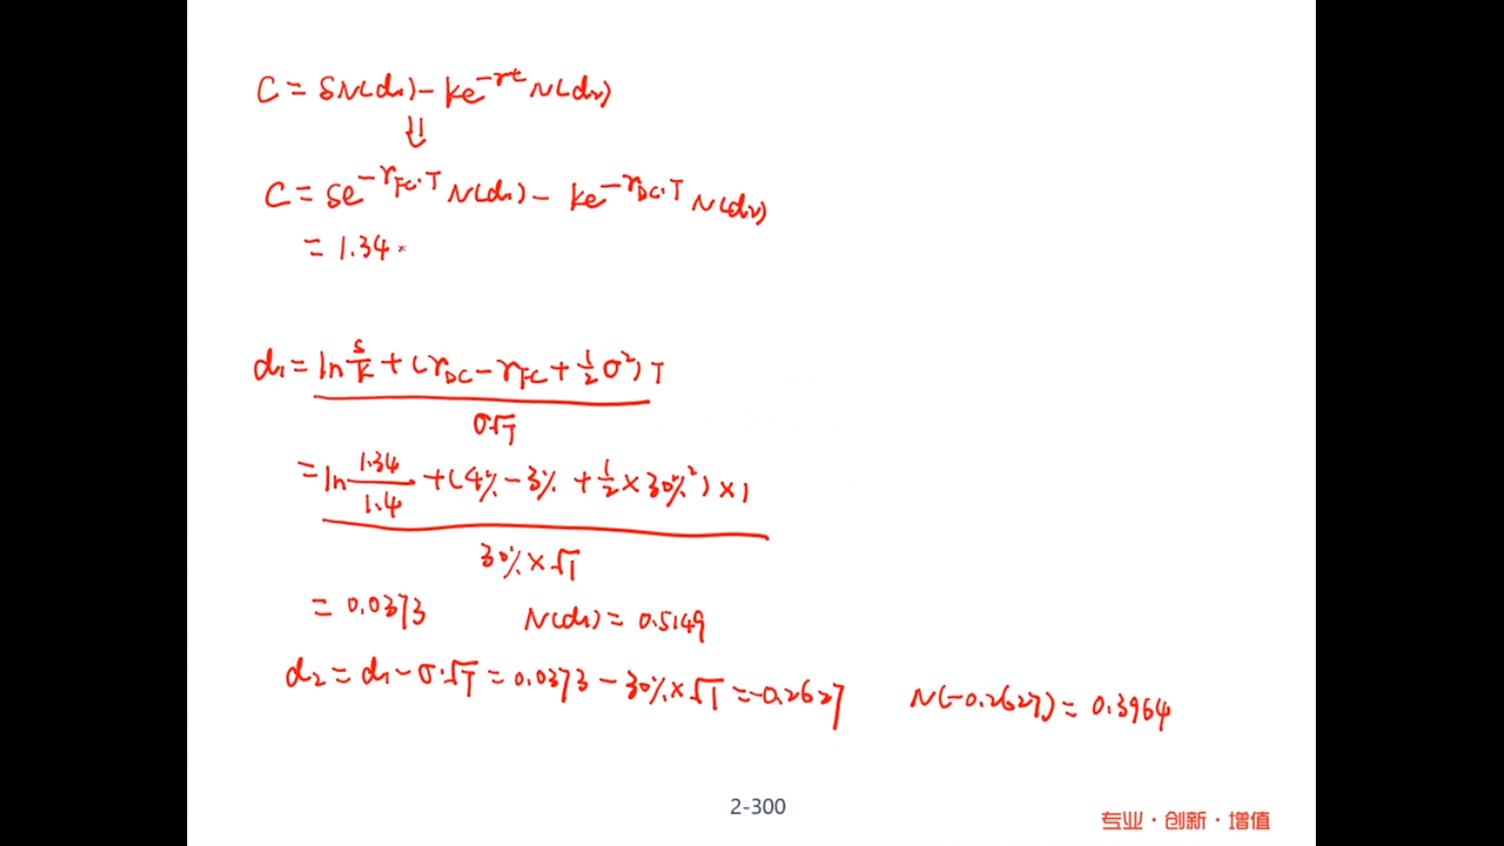 C = SN(d₁) - ke^{-rt} N(d₂)
⇓
C = Se^{-r_{FC}·T} N(d₁) - ke^{-r_{DC}·T} N(d₂)
= 1.34 ×
d₁ = ln S/K + (r_{DC} - r_{FC} + 1/2 σ²) T
σ√T
= ln 1.34/1.4 + (4% - 3% + 1/2 × 30%²) × 1
30% × √1
= 0.0373 N(d₁) = 0.5149
d₂ = d₁ - σ·√T = 0.0373 - 30% × √1 = -0.2627 N(-0.2627) = 0.3964
2-300
专业·创新·增值